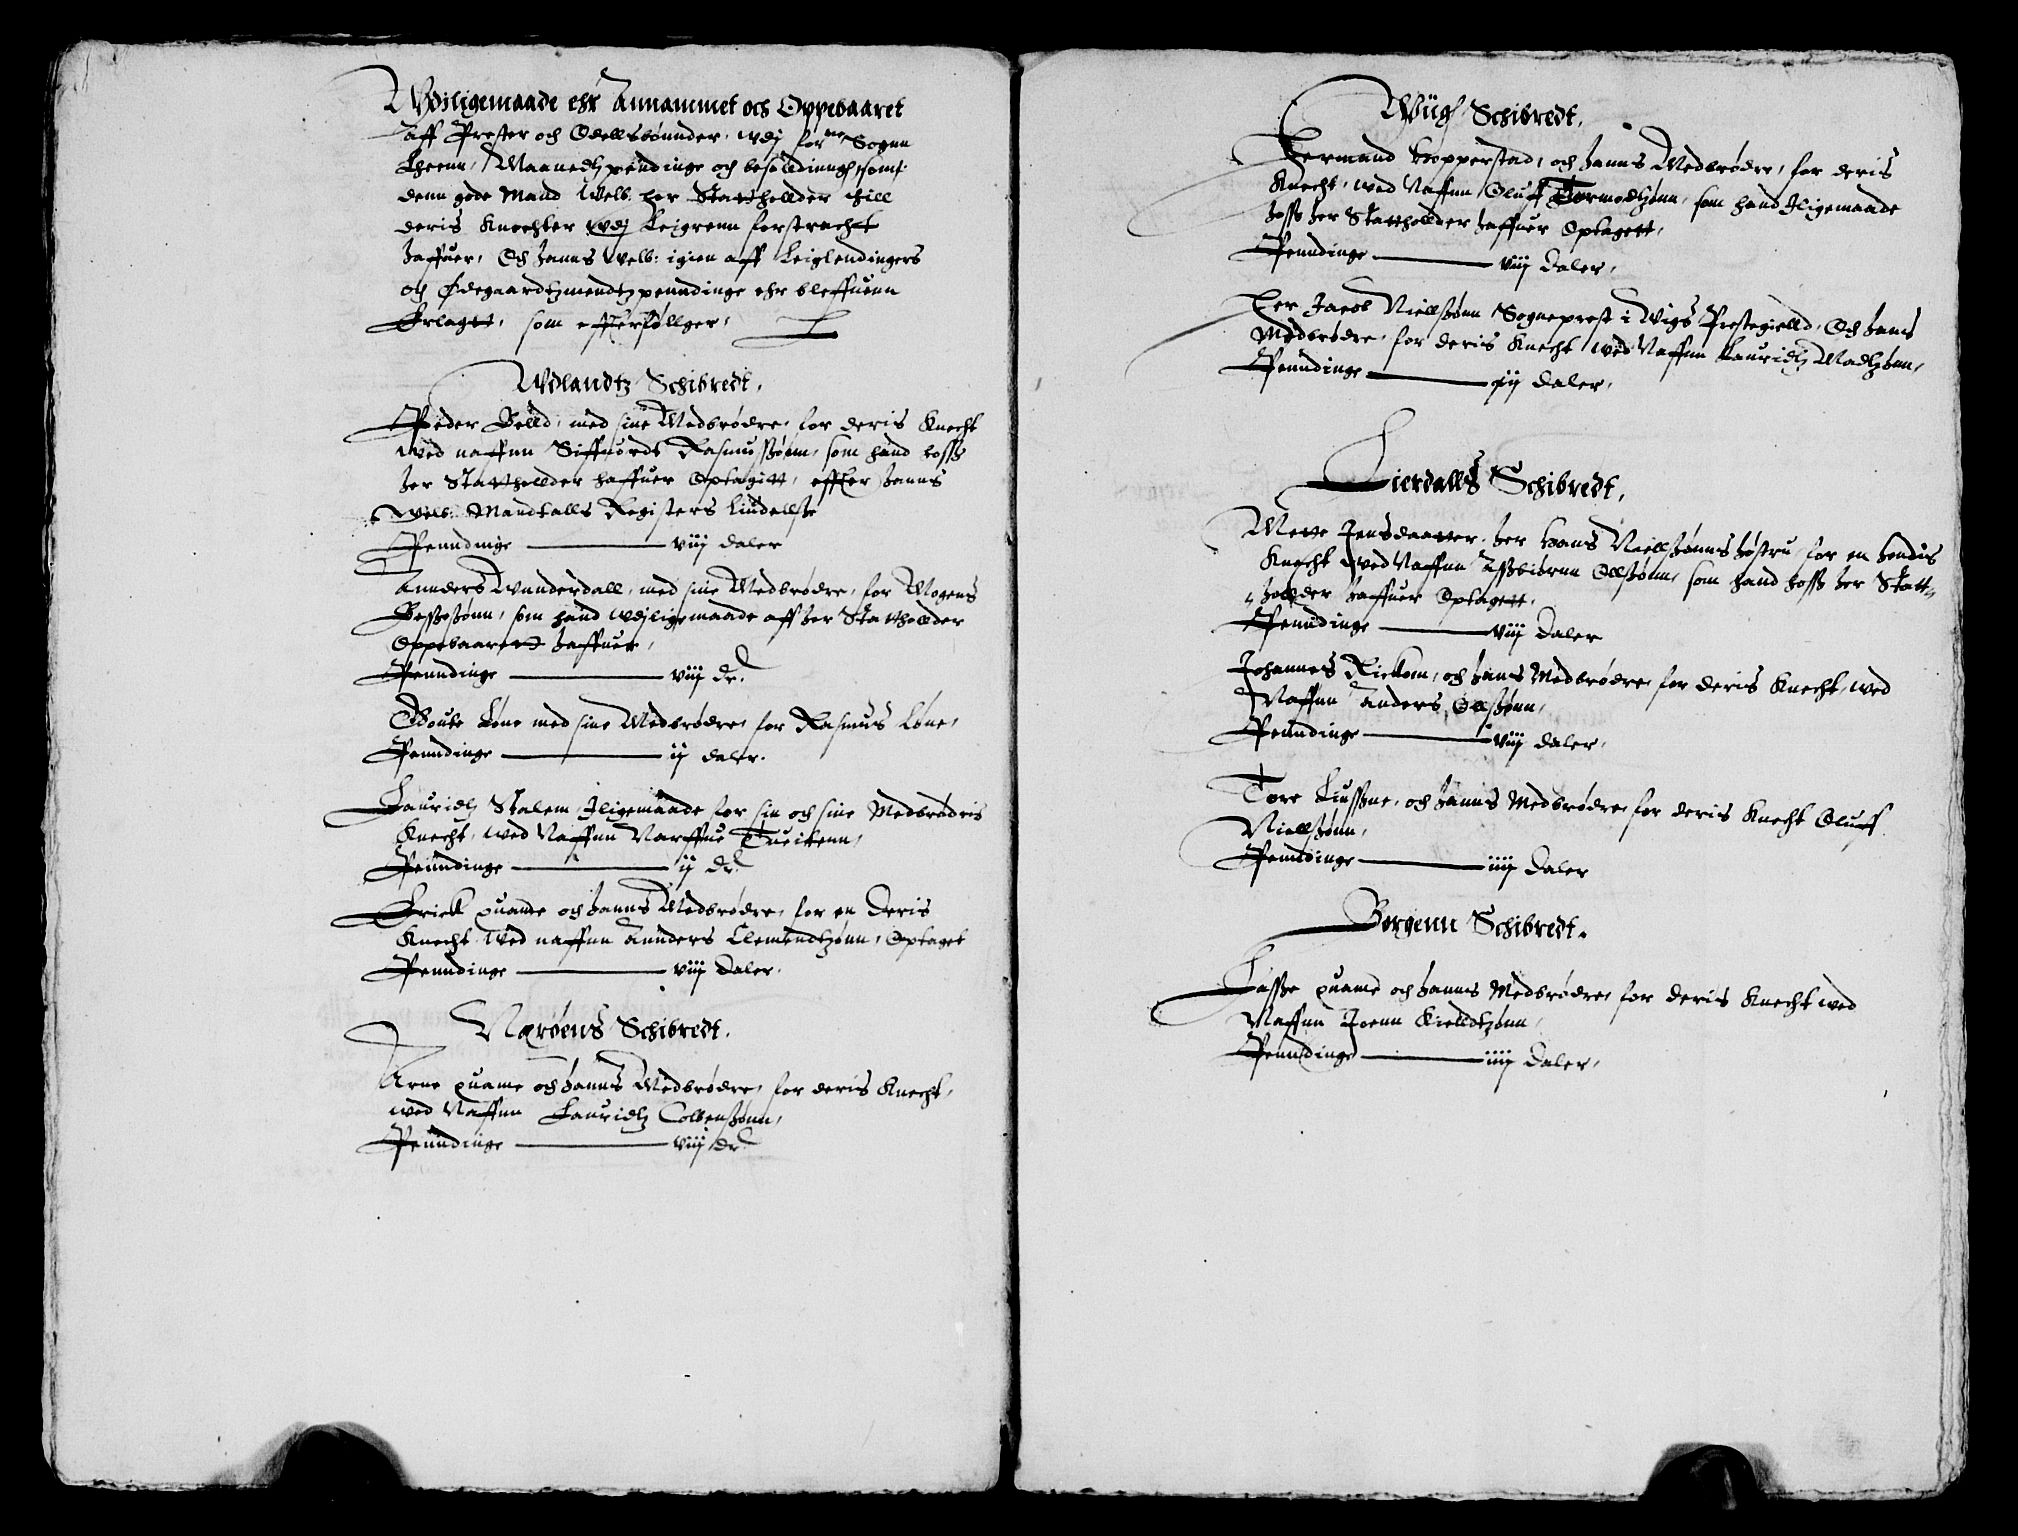 Wdiligemaade ehr Annammet och Oppebaaret
aff Prester och Odellsbønnder, wdj forne Sogne
Lheenn, Maanedtzpendinge och besolldinngh, som
denn gode Mand Welb: her Stathollder thill
deris Knechter wdj Leigrenn forstracht
haffuer, Och hanns Welb: igien aff Leiglendingers
och Ødegaardtzmendtz penndinge ehr bleffuenn
Erlagtt, som efterføllger,
Wdlandtz Schibredt,
Peder med sine Medbrødre, for deris Knecht
wed naffnn Siffuordt Rasmussønn, som hand hosß
her Stathollder haffuer Optagitt, effter hanns
Welb: Mandtalls Registers Liudellße
Penndinge viij daler
Annders Wunderdall, med sine Medbrødre, for Mogens
Besßesønn, som hand wdjligemaade aff her Stathollder
Oppebaarett haffuer,
Penndinge viij dr.
Boute Løne med sine Medbrødre, for Rasmus Løne,
Penndinge ij daler.
Lauridtz Stalem, Iligemaade for sin och sine Medbrødris
Knecht, wed Naffnn Narffue Tueitenn,
Penndinge ij dr.
Erick quame och hanns Medbrødre, for en deris
Knecht wed naffnn Annders Clemendtzønn, Optaget
Penndinge viij daler,
Nærøens Schibredt.
Arne quame och hanns Medbrødre, for deris Knecht,
wed Naffnn Lauridtz Colbenßønn,
Penndinge viij dr
Wiigh Schibredt,
Hermand Hopperstad, och hanns Medbrødre, for deris
Knecht, wed Naffnn Oluff Tormodtzønn, som hand Iligemaade
hosß her Stathollder haffuer Optagett,
Penndinge viij daler,
Her Jacob Niellßønn Sogneprest i Wigs Prestegielld, Och hans
Medbrødre, for deris Knecht, wed Naffnn Lauridtz Madtzønn,
Penndinge iij daler,
Lierdalls Schibredt,
Mette Jensdaatter, her Hans Niellßønns høstru, for en hendis
Knecht wed Naffnn Aßbiørnn Ollßønn, som hand hosß her Statt-
hollder haffuer Optagett,
Penndinge viij daler
Johannes Rickom, och hans Medbrødre for deris Knecht, wed
Naffnn Anders Ollßønn,
Penndinge viij daler,
Tore Liusßne, och hanns Medbrødre, for deris Knecht Oluff
Niellßønn,
Penndinge iiij daler
Borgenn Schibredt.
Lasße quame och hanns Medbrødre, for deris Knecht wed
Naffnn Joenn Kielldtzønn,
Penndinge iiij daler,